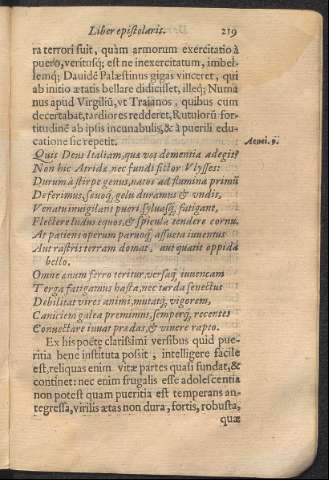 Liber epistolaris. 219
ra terrori fuit, quàm armorum exercitatio à
puero, veritusq; est ne inexercitatum, imbel-
lemq; Dauidē Palæstinus gigas vinceret, qui
ab initio ætatis bellare didicisset, illeq; Numa
nus apud Virgiliũ, vt Troianos, quibus cum
decertabat, tardiores redderet, Rutulorũ for-
titudinē ab ipsis incunabulis, & à puerili edu-
catione sic repetit.
Aenei. 9.
Quis Deus Italiam, quæ vos dementia adegit?
Non hic Atridæ, nec fandi fictor Vlysses:
Durum à stirpe genus, natos ad flumina primũ
Deferimus, sæuoq; gelu duramus & vndis,
Venatu inuigilant pueri, syluasq; fatigant,
Flectere ludus equos, & spicula tendere cornu.
At patiens operum paruoq; assueta iuuentus
Aut rastris terram domat, aut quatit oppida
bello.
Omne æuum ferro teritur, versaq; iuuencum
Terga fatigamus hasta, nec tarda senectus
Debilitat vires animi, mutatq; vigorem,
Canitiem galea premimus, semperq; recentes
Conuectare iuuat prædas, & viuere rapto.
Ex his poëtæ clarissimi versibus quid pue-
ritia bene instituta possit, intelligere facile
est, reliquas enim vitæ partes quasi fundat, &
continet: nec enim frugalis esse adolescentia
non potest quam pueritia est temperans an-
tegressa, virilis ætas non dura, fortis, robusta,
quæ